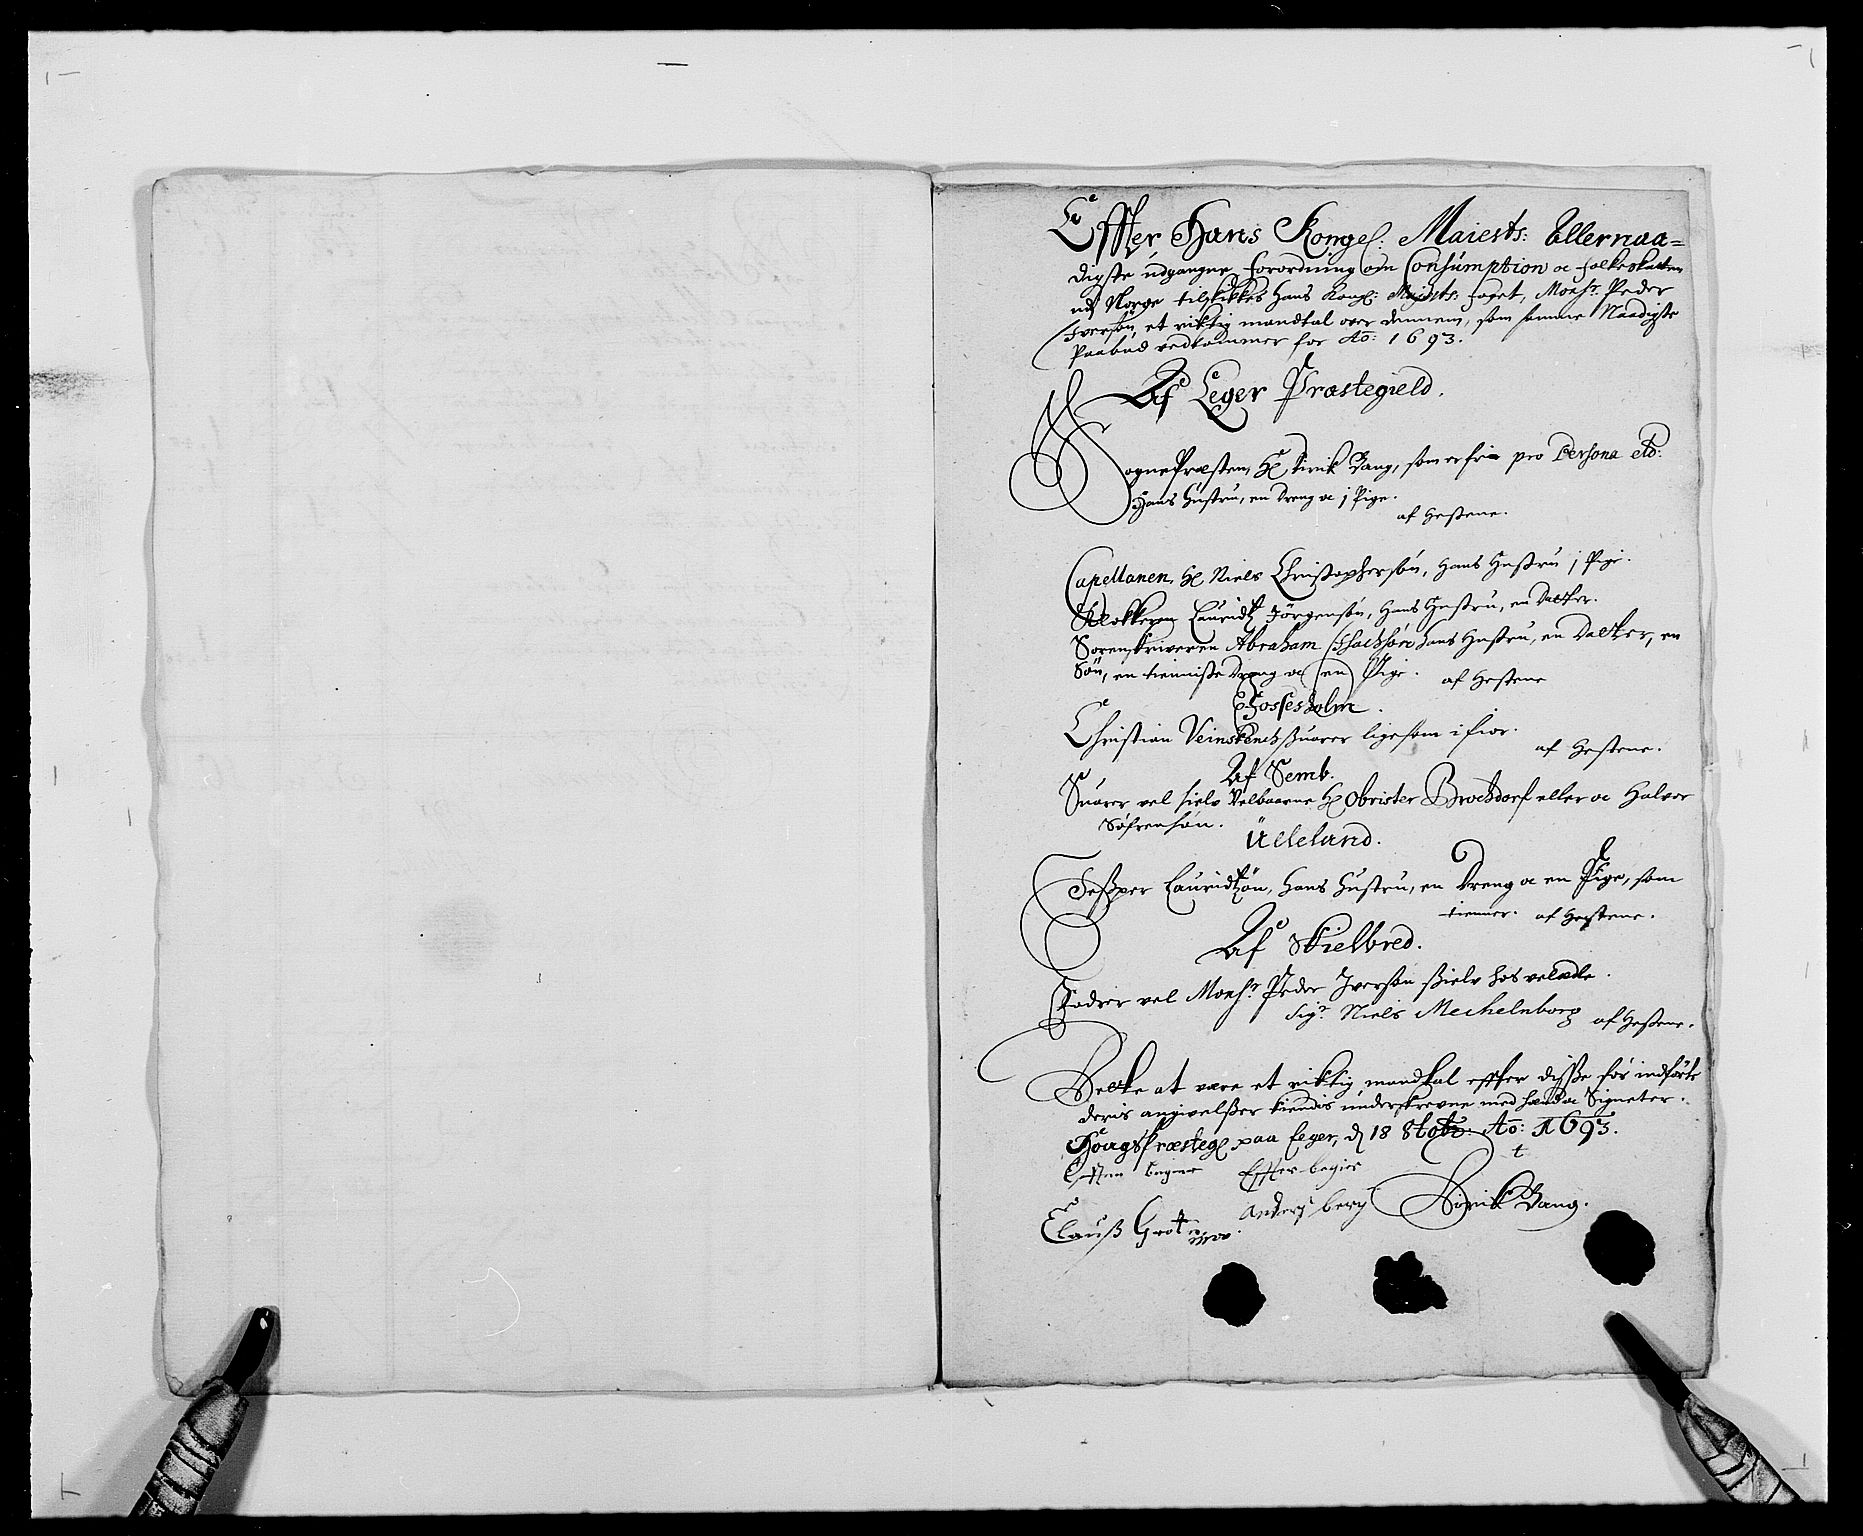 Effter Hans Kongel: Maiests: Allernaa=
digste udgangne forordning om Consumption oc folkeskatten
udj Norge tilskikkes Hans Kongl: Majests. foget, Monsr. Peder
Iversön, et riktig mandtal over dennem, som samme Naadigste
Paabud vedkommer for Ao: 1693.
Af Eger Præstegield.
SognePræsten Hr Eirik Bang, som er frj pro Persona etc:
Hans Hustru, en Dreng oc j Pige.
af Hestene.
Capellanen, Hr Niels Christophersön, Hans Hustru j Pige.
Klokkeren Lauridtz Jörgensön, Hans Hustru, en Datter.
Sorenskriveren Abraham Isachsön hans Hustru, en Datter, en
Sön, en tienniste Dreng oc en Pige. af Hestene
Fossesholm.
Christian Veinskench suarer ligesom i fior.
af Hestene.
Af Semb.
Suarer vel sielv Velbaarne Hr Obrister Brochdorf eller oc Halvor
Söfrensön.
Ülleland.
Jesper Lauridtzön, Hans Hustru, en Dreng oc en Pige, som
tienner. af Hestene.
Af Skielbred.
Fodrer vel Monsr. Peder Iversön sielv hos velædle.
Sigr. Niels Mechelnborg af Hestene.
Dette at være et riktig mandtal effter disse för indförte
deris angivelser kiendis underskrevne med haand oc Signeter.
Hougs Præstegl paa Eger, d 18 8tobr: Ao: 1693.
Effter begier
Effter begier
Anders berg
Eirik Bang.
Clauss Grot